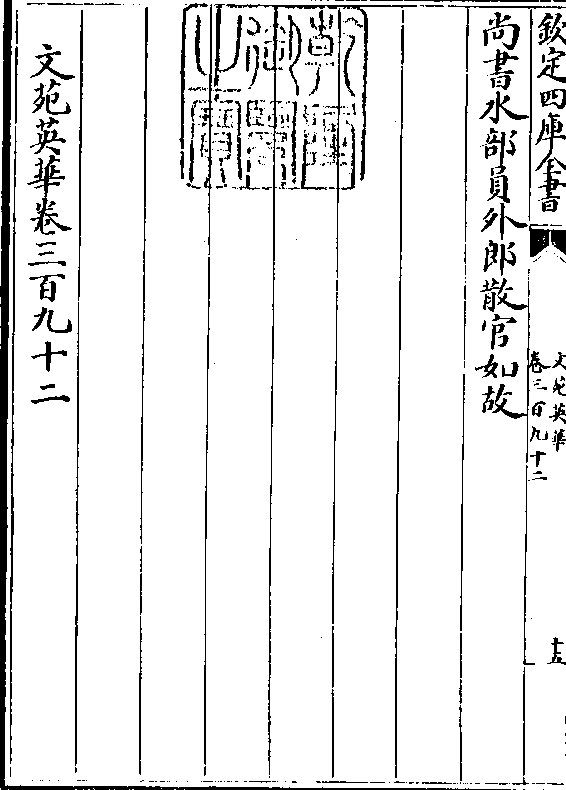 欽定四庫全書
文苑英華
卷三百九十二
十五
尚書水部員外郎散官如故
乾隆御覽之寶
文苑英華卷三百九十二